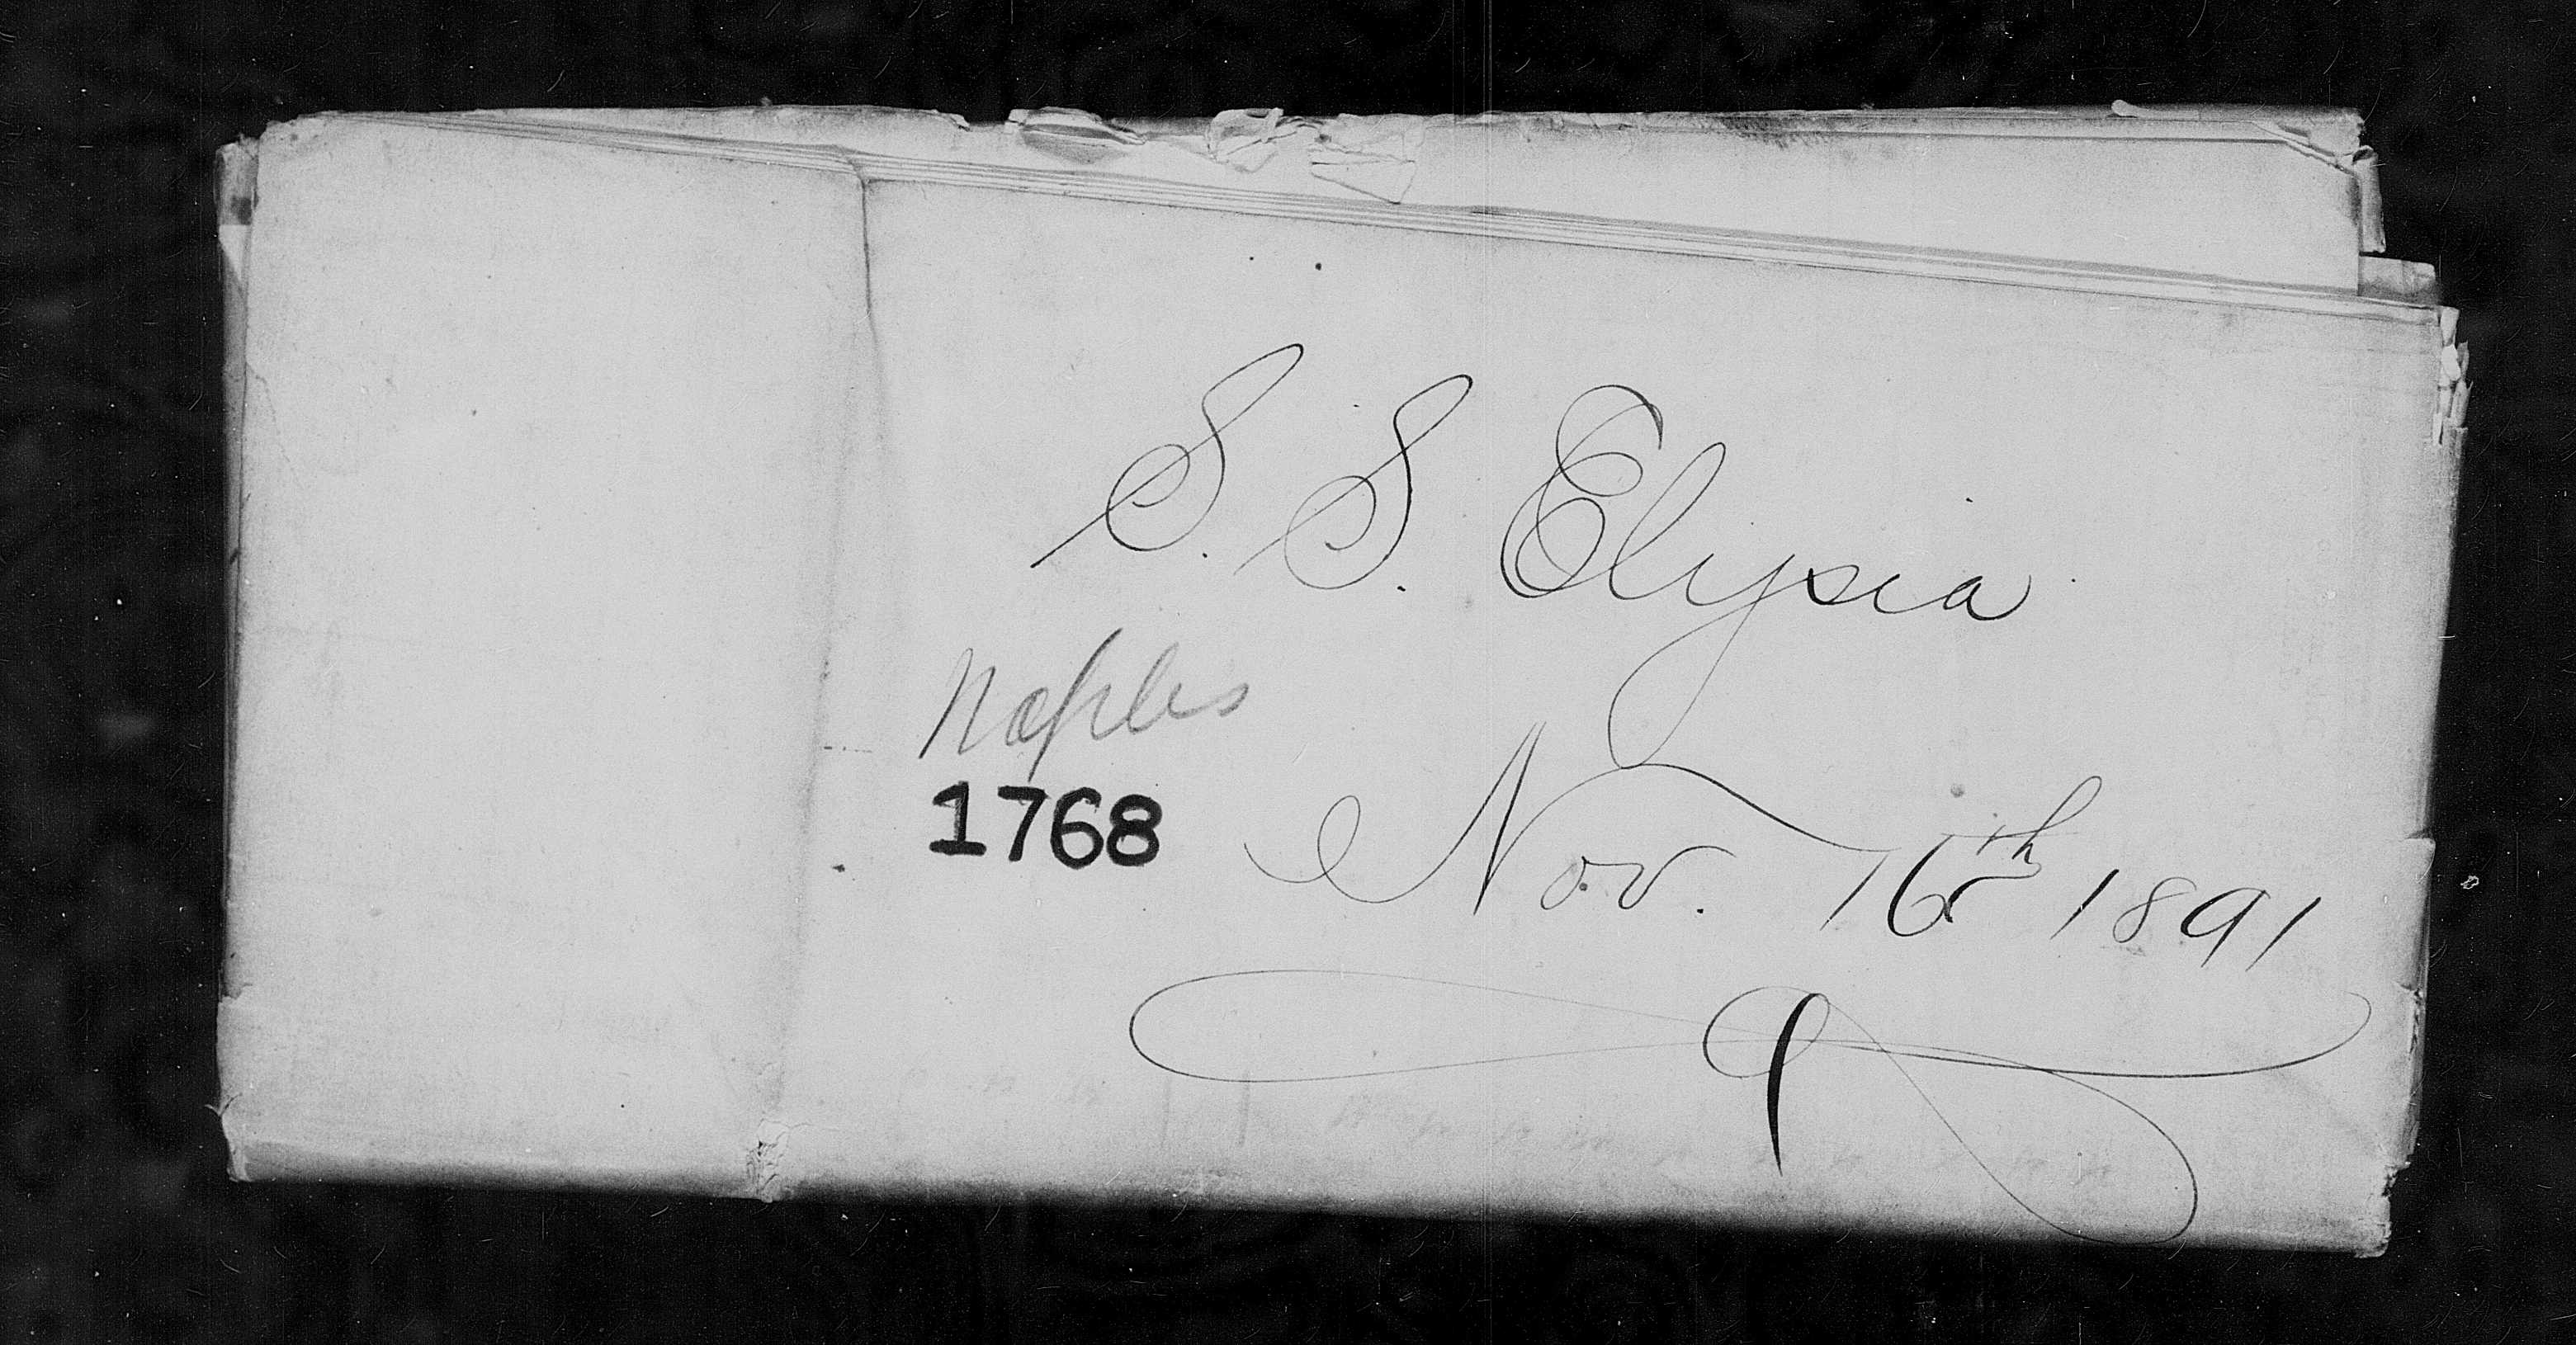 S. S. Elysia
Naples
1768
Nov. 16th 1891